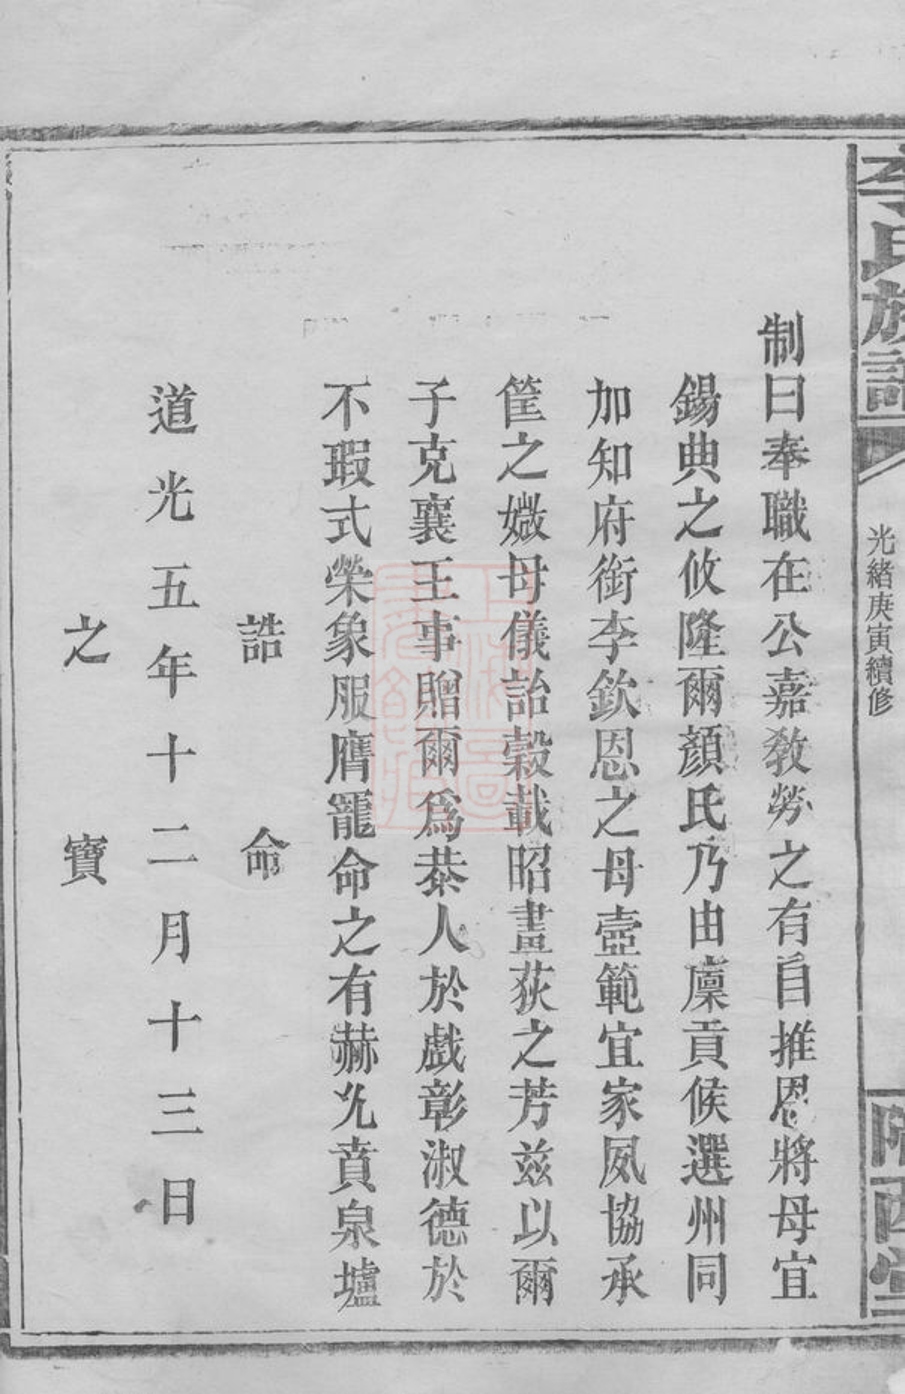 李氏族譜
光緒庚寅續修
隴西堂
制曰奉職在公嘉教勞之有自推恩將母宜
錫典之攸隆爾顏氏乃由廩貢候選州同
加知府銜李欽恩之母壼範宜家夙協承
筐之媺母儀詒榖載昭畫荻之芳茲以爾
子克襄王事贈爾爲恭人於戲彰淑德於
不瑕式榮象服膺寵命之有赫允賁泉壚
誥命
道光五年十二月十三日
之寶